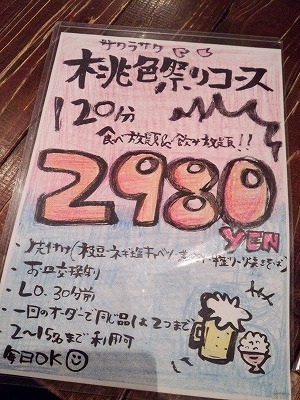 サクラサク
桃色祭りコース
120分
食べ放題&飲み放題!!
2980
YEN
・1皮付け(枝豆・ネギ塩キャベツ
・お皿交換制
・L.O.30分前
・一回のオーダーで同じ品は2つまで
・2〜15名まで利用可
毎日OK